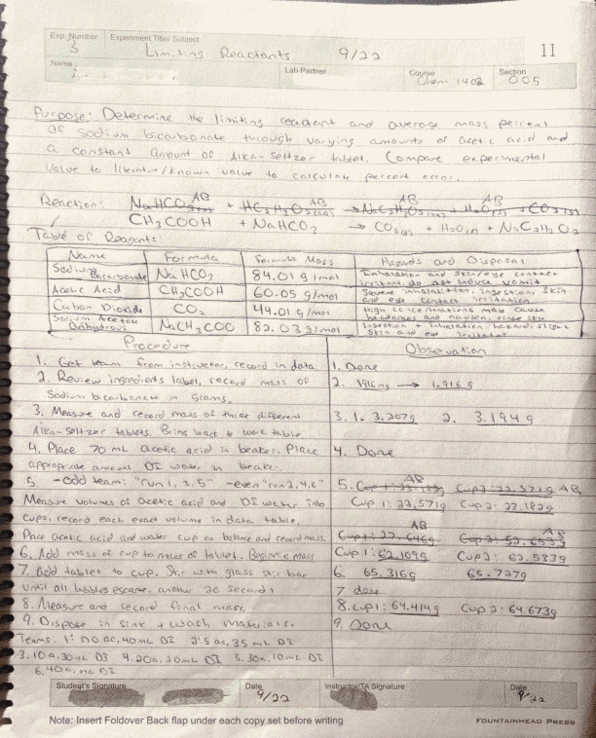 Exp. Number Experiment Title/ Subject
3 Limiting Reactants 9/22 11
Name Lab Partner Course Section
Chem 1402 005
Purpose: Determine the limiting reactant and average mass percent
of sodium bicarbonate through varying amounts of acetic acid and
a constant amount of Alka-seltzer tablet. Compare experimental
value to literature/known value to calculate percent error.
Reaction:
CH3COOH + NaHCO3 → CO2(g) + H2O(l) + NaC2H3O2
Table of Reagents:
Name Formula Formula Mass Hazards and Disposal
Sodium Bicarbonate NaHCO3 84.01 g/mol Inhalation and skin/eye contact irritant, do not induce vomit
Acetic Acid CH3COOH 60.05 g/mol Severe inhalation, ingestion, skin and eye contact irritation
Carbon Dioxide CO2 44.01 g/mol High concentrations may cause headaches and nausea
Sodium Acetate Anhydrous NaCH3COO 82.03 g/mol Ingestion + inhalation hazard, slight skin and eye
Procedure Observation
1. Get team from instructor, record in data. 1. Done
2. Review ingredients label, record mass of 2. 1916mg → 1.916g
Sodium bicarbonate in grams.
3. Measure and record mass of three different 3. 1. 3.207g 2. 3.194g
Alka-seltzer tablets. Bring back to work table.
4. Place 70 mL acetic acid in beaker. Place 4. Done
appropriate amount DI water in beaker.
5. -Odd team: "run 1,3,5" -even "run 2,4,6" 5.
Measure volumes of acetic acid and DI water into Cup 1: 22.571g Cup 2: 23.182g
cups, record each exact volume in data table.
Place acetic acid and water cup on balance and record mass.
6. Add mass of cup to mass of tablet. Beginning mass Cup 1: 62.109g Cup 2: 62.533g
7. Add tablet to cup. Stir with glass stir 6. 65.316g 65.727g
until all bubbles escape, another 20 seconds 7 done
8. Measure and record final mass. 8. Cup 1: 64.414g Cup 2: 64.673g
9. Dispose in sink + wash materials. 9. Done
Teams: 1: no ac, 40mL DI 2. 5 ac, 35 mL DI
3. 10 a, 30 mL DI 4. 20a, 20mL DI 5. 30a, 10mL DI
6. 40a, no DI
Student's Signature Date Instructor/TA Signature Date
9/22 9/22
Note: Insert Foldover Back flap under each copy set before writing FOUNTAINHEAD PRESS